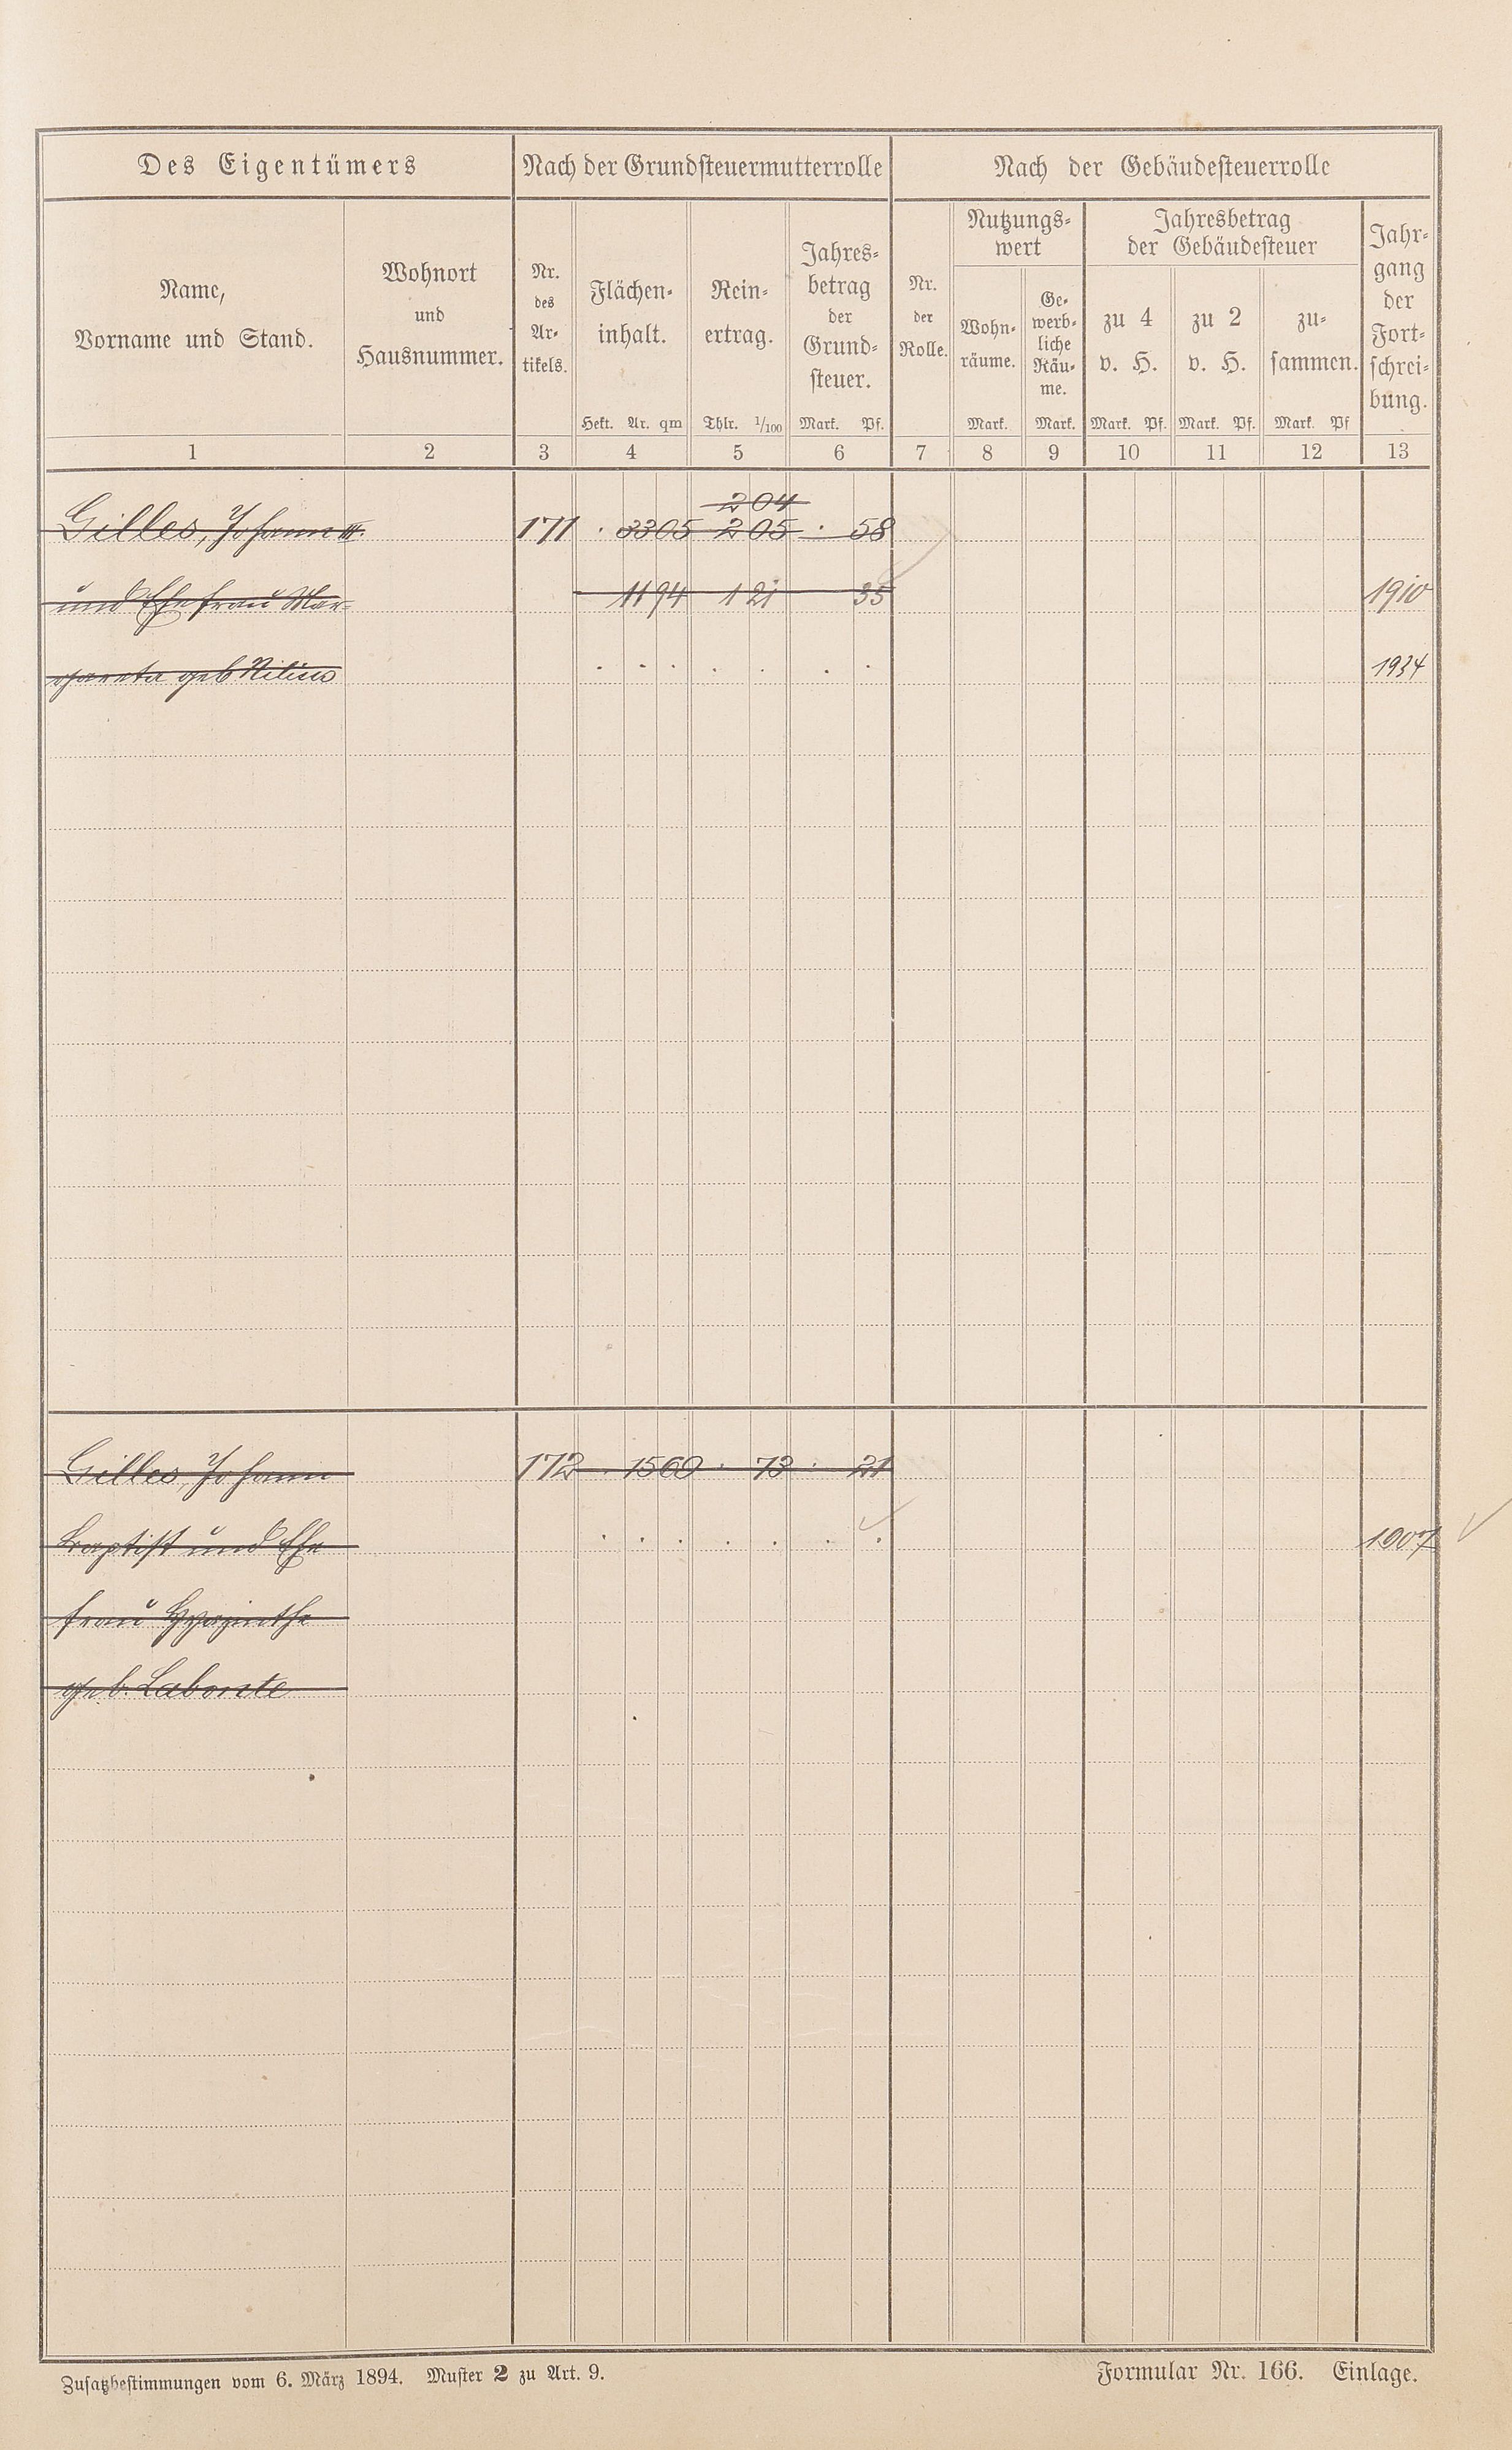 Des Eigentümers
Nach der Grundsteuermutterrolle
Nach der Gebäudesteuerrolle
Name,
Vorname und Stand.
Wohnort
und
Hausnummer.
Nr.
des
Ar-
tikels.
Flächen-
inhalt.
Hekt. Ar. qm
Rein-
ertrag.
Thlr. 1/100
Jahres-
betrag
der
Grund-
steuer.
Mark. Pf.
Nr.
der
Rolle.
Nutzungs-
wert
Wohn-
räume.
Mark.
Ge-
werb-
liche
Räu-
me.
Mark.
Jahresbetrag
der Gebäudesteuer
zu 4
v. H.
Mark. Pf.
zu 2
v. H.
Mark. Pf.
zu-
sammen.
Mark. Pf
Jahr-
gang
der
Fort-
schrei-
bung.
1 2 3 4 5 6 7 8 9 10 11 12 13
204
Gilles, Johann III. 171 . 3305 205 . 58
und Ehefrau Mar- 1194 121 35 1910
gareta geb . . . . . . . 1934
Gilles, Johann 172 . 1560 . 73 . 21
Baptist und Ehe . . . . . . . 1907
frau Hyazinthe
geb. Laborte
Zusatzbestimmungen vom 6. März 1894. Muster 2 zu Art. 9.
Formular Nr. 166. Einlage.